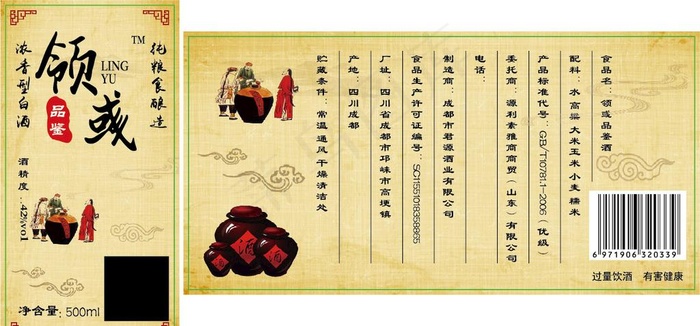 纯粮食酿造
TM
领彧
LING
YU
品鉴
浓香型白酒
酒精度:42%vol
净含量: 500ml
食品名：领彧品鉴酒
配料：水 高粱 大米 玉米 小麦 糯米
产品标准代号：GB/T10781.1-2006（优级）
委托商：源利素雅商贸（山东）有限公司
电话：
制造商：成都市君源酒业有限公司
食品生产许可证编号：SC11551018358865
厂址：四川省成都市邛崃市高埂镇
产地：四川成都
贮藏条件：常温通风干燥清洁处
酒
酒
6 971906 320339
过量饮酒 有害健康